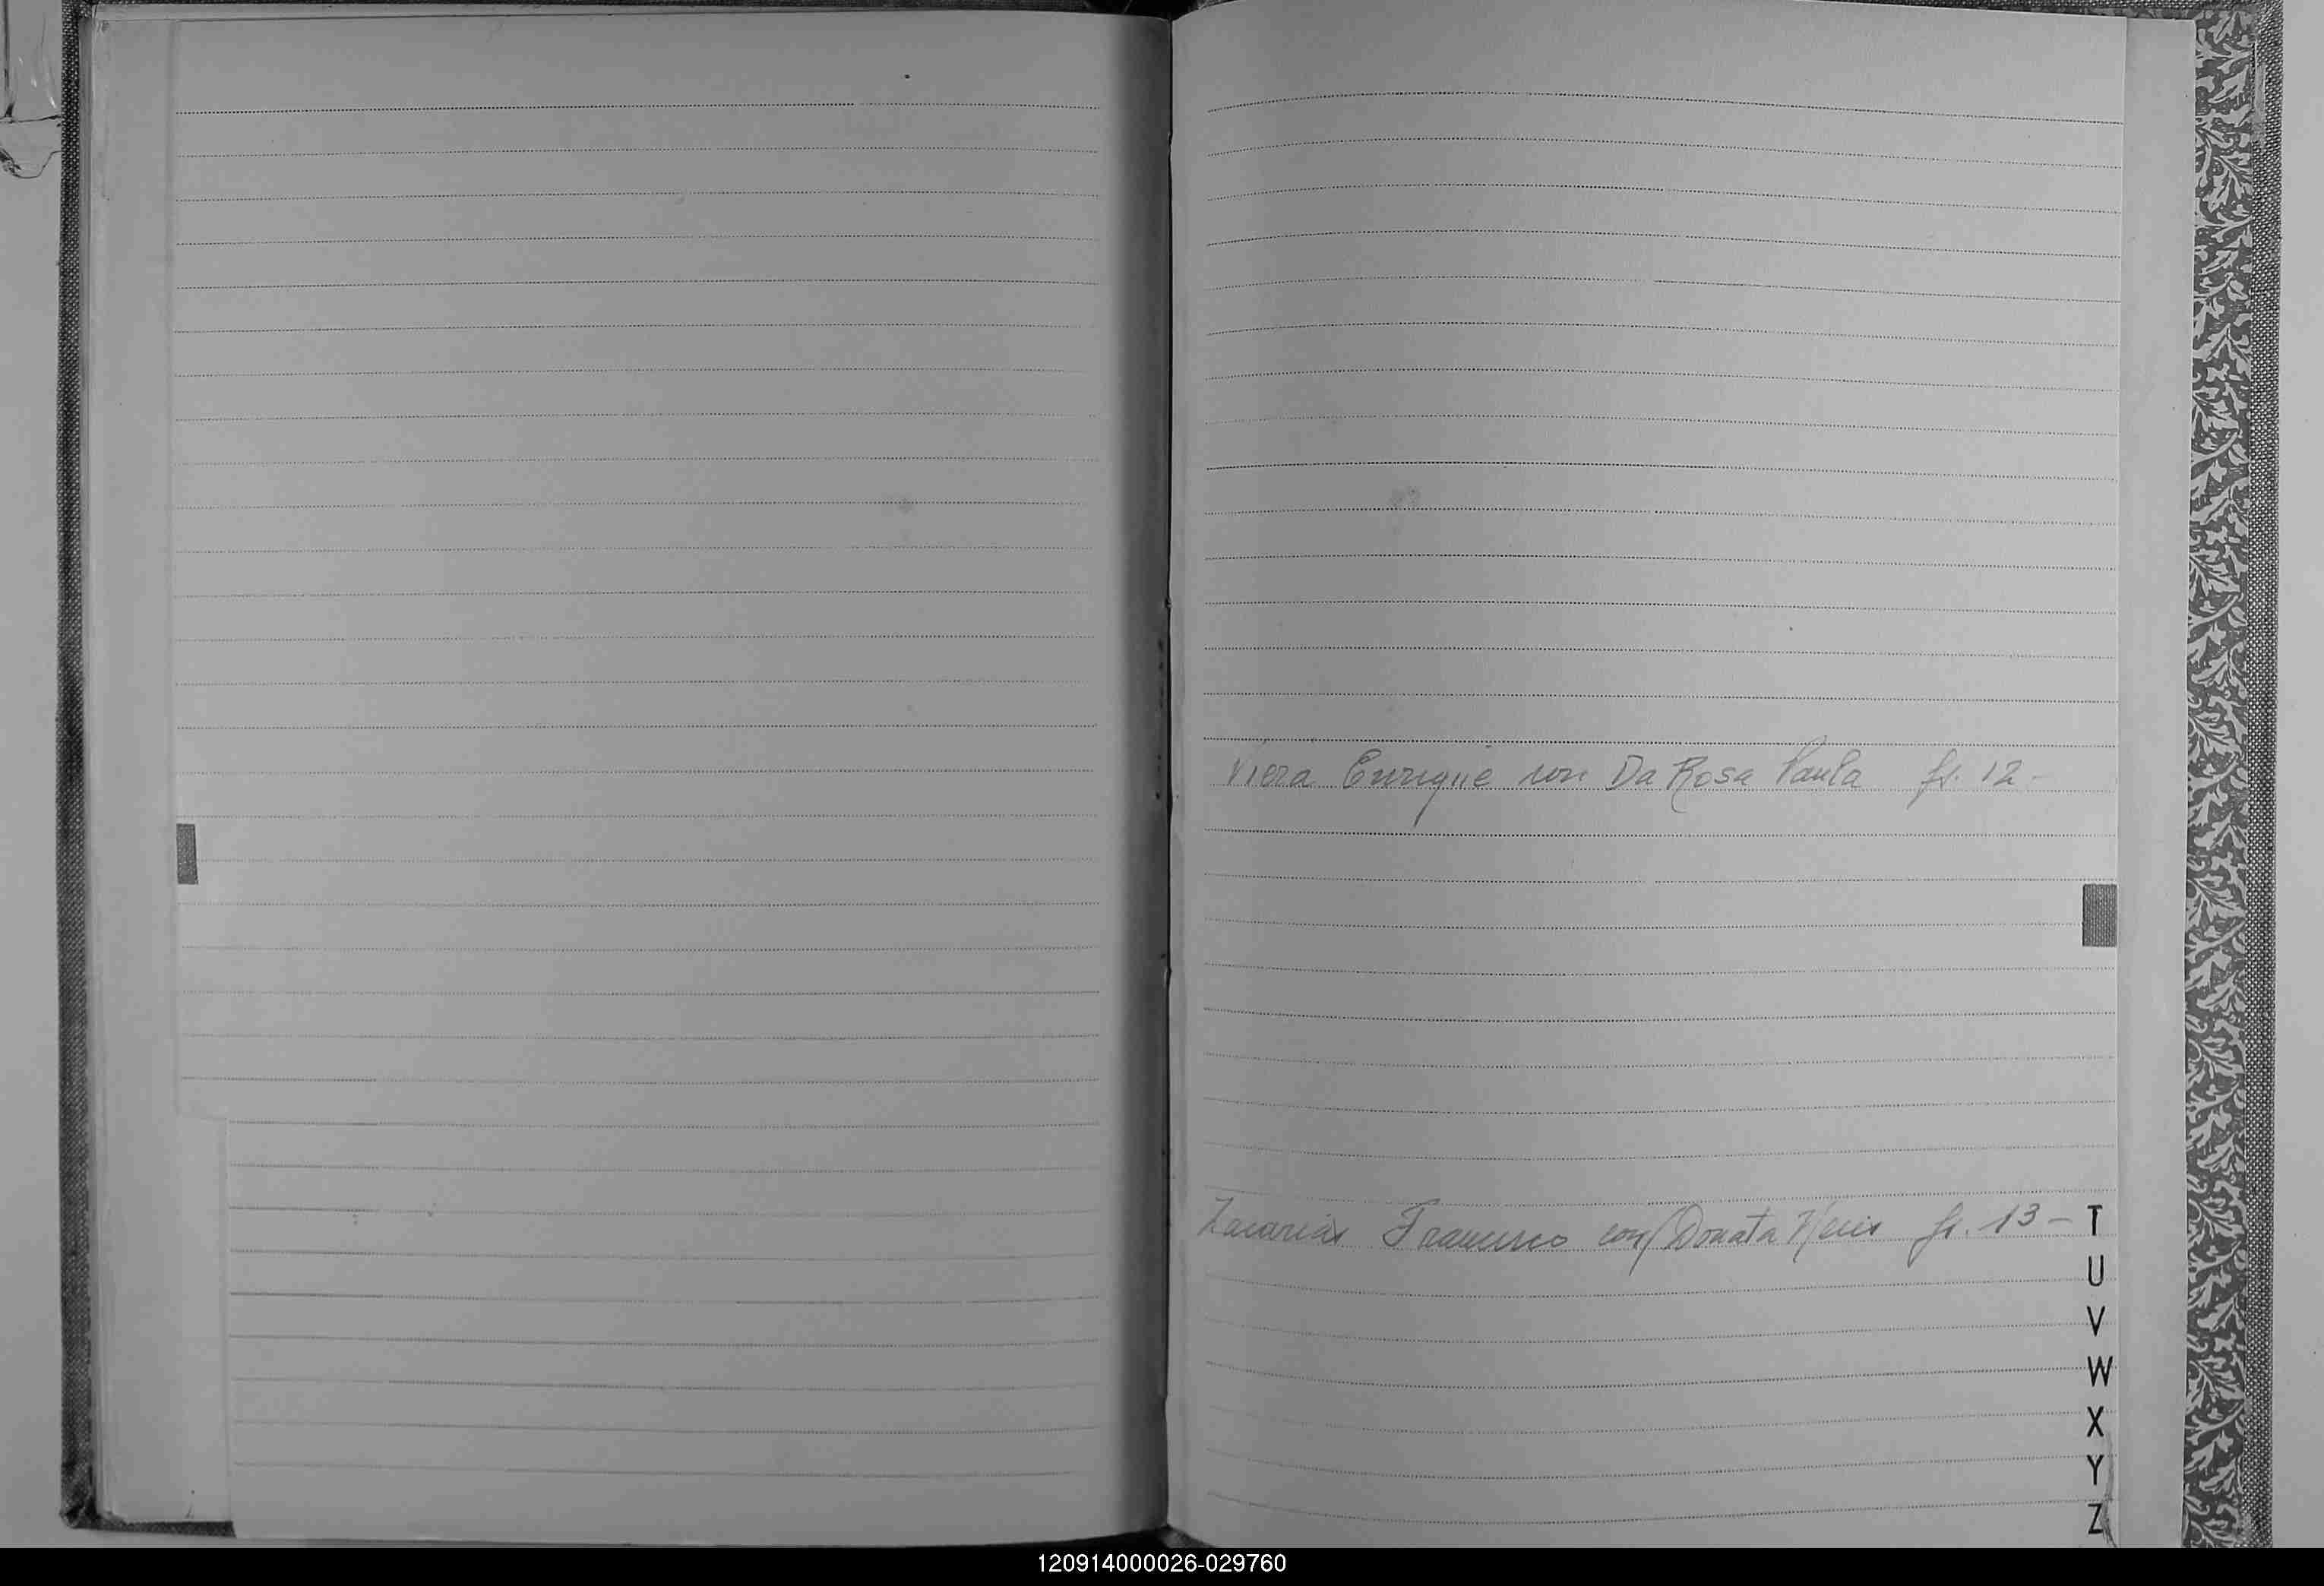 Viera Enrique con Da Rosa Paula fs. 12-
Zacarías Francisco con Donata fs. 13-
T
U
V
W
X
Y
Z
120914000026-029760